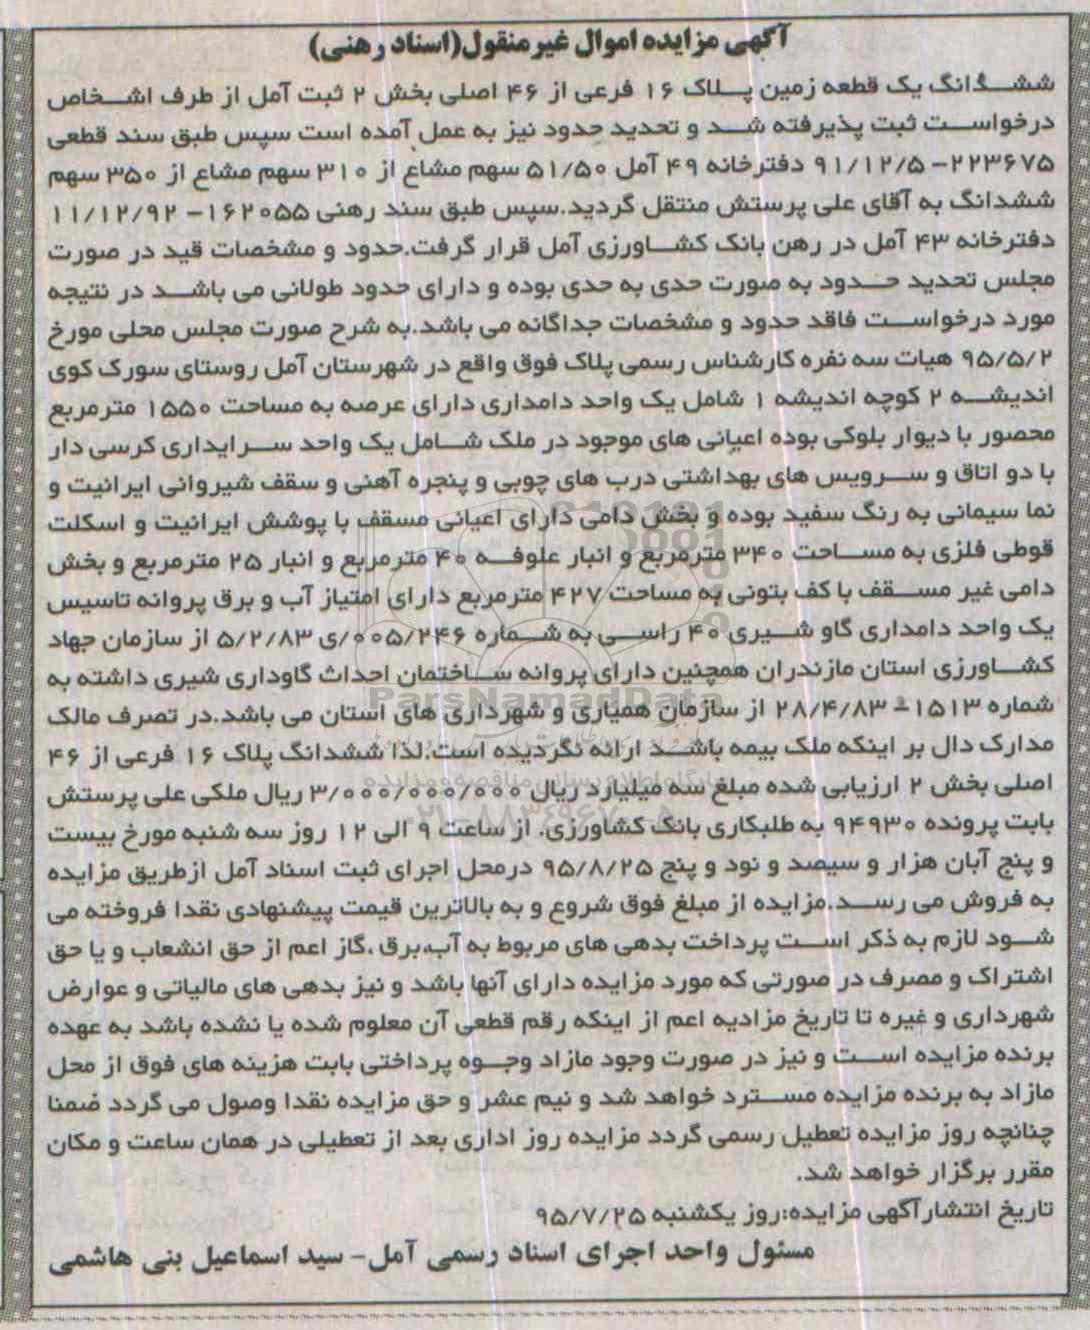 آگهی مزایده اموال غیرمنقول(اسناد رهنی)
ششدانگ یک قطعه زمین پلاک ۱۶ فرعی از ۴۶ اصلی بخش ۲ ثبت آمل از طرف اشخاص
درخواست ثبت پذیرفته شد و تحدید حدود نیز به عمل آمده است سپس طبق سند قطعی
۲۲۳۶۷۵- ۹۱/۱۲/۵ دفترخانه ۴۹ آمل ۵۱/۵۰ سهم مشاع از ۳۱۰ سهم مشاع از ۳۵۰ سهم
ششدانگ به آقای علی پرستش منتقل گردید.سپس طبق سند رهنی ۱۶۲۰۵۵- ۱۱/۱۲/۹۲
دفترخانه ۴۳ آمل در رهن بانک کشاورزی آمل قرار گرفت.حدود و مشخصات قید در صورت
مجلس تحدید حدود به صورت حدی به حدی بوده و دارای حدود طولانی می باشد در نتیجه
مورد درخواست فاقد حدود و مشخصات جداگانه می باشد.به شرح صورت مجلس محلی مورخ
۹۵/۵/۲ هیات سه نفره کارشناس رسمی پلاک فوق واقع در شهرستان آمل روستای سورک کوی
اندیشه ۲ کوچه اندیشه ۱ شامل یک واحد دامداری دارای عرصه به مساحت ۱۵۵۰ مترمربع
محصور با دیوار بلوکی بوده اعیانی های موجود در ملک شامل یک واحد سرایداری کرسی دار
با دو اتاق و سرویس های بهداشتی درب های چوبی و پنجره آهنی و سقف شیروانی ایرانیت و
نما سیمانی به رنگ سفید بوده و بخش دامی دارای اعیانی مسقف با پوشش ایرانیت و اسکلت
قوطی فلزی به مساحت ۳۴۰ مترمربع و انبار علوفه ۴۰ مترمربع و انبار ۲۵ مترمربع و بخش
دامی غیر مسقف با کف بتونی به مساحت ۴۲۷ مترمربع دارای امتیاز آب و برق پروانه تاسیس
یک واحد دامداری گاو شیری ۴۰ راسی به شماره ۰۰۵/۲۴۶/ی ۵/۲/۸۳ از سازمان جهاد
کشاورزی استان مازندران همچنین دارای پروانه ساختمان احداث گاوداری شیری داشته به
شماره ۱۵۱۳- ۲۸/۴/۸۳ از سازمان همیاری و شهرداری های استان می باشد.در تصرف مالک
مدارک دال بر اینکه ملک بیمه باشد ارائه نگردیده است.لذا ششدانگ پلاک ۱۶ فرعی از ۴۶
اصلی بخش ۲ ارزیابی شده مبلغ سه میلیارد ریال ۳/۰۰۰/۰۰۰/۰۰۰ ریال ملکی علی پرستش
بابت پرونده ۹۴۹۳۰ به طلبکاری بانک کشاورزی. از ساعت ۹ الی ۱۲ روز سه شنبه مورخ بیست
و پنج آبان هزار و سیصد و نود و پنج ۹۵/۸/۲۵ درمحل اجرای ثبت اسناد آمل ازطریق مزایده
به فروش می رسد.مزایده از مبلغ فوق شروع و به بالاترین قیمت پیشنهادی نقدا فروخته می
شود لازم به ذکر است پرداخت بدهی های مربوط به آب،برق ،گاز اعم از حق انشعاب و یا حق
اشتراک و مصرف در صورتی که مورد مزایده دارای آنها باشد و نیز بدهی های مالیاتی و عوارض
شهرداری و غیره تا تاریخ مزادیه اعم از اینکه رقم قطعی آن معلوم شده یا نشده باشد به عهده
برنده مزایده است و نیز در صورت وجود مازاد وجوه پرداختی بابت هزینه های فوق از محل
مازاد به برنده مزایده مسترد خواهد شد و نیم عشر و حق مزایده نقدا وصول می گردد ضمنا
چنانچه روز مزایده تعطیل رسمی گردد مزایده روز اداری بعد از تعطیلی در همان ساعت و مکان
مقرر برگزار خواهد شد.
تاریخ انتشارآگهی مزایده:روز یکشنبه ۹۵/۷/۲۵
مسئول واحد اجرای اسناد رسمی آمل- سید اسماعیل بنی هاشمی
ParsNamadData